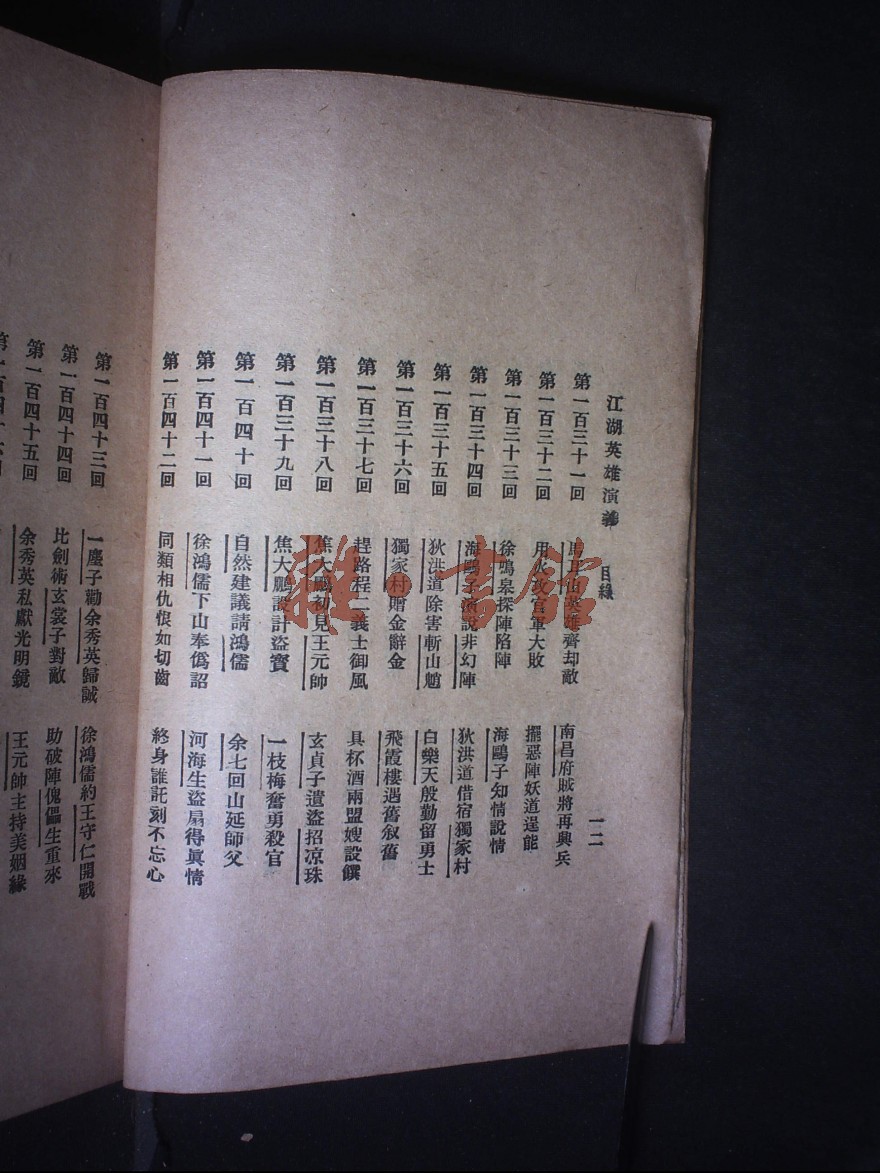 江湖英雄演義 目錄 一二
第一百三十一回 馬耳山英雄齊却敵 南昌府賊將再興兵
第一百三十二回 用火攻官軍大敗 擺惡陣妖道逞能
第一百三十三回 徐鳴皋探陣陷陣 海鷗子知情說情
第一百三十四回 海鷗子演說非幻陣 狄洪道借宿獨家村
第一百三十五回 狄洪道除害斬山魈 白樂天殷勤留勇士
第一百三十六回 獨家村贈金辭金 飛霞樓遇舊叙舊
第一百三十七回 趕路程二義士御風 具杯酒兩盟嫂設饌
第一百三十八回 焦大鵬初見王元帥 玄貞子遣盜招凉珠
第一百三十九回 焦大鵬設計盜寶 一枝梅奮勇殺官
第一百四十回 自然建議請鴻儒 余七回山延師父
第一百四十一回 徐鴻儒下山奉僞詔 河海生盜扇得眞情
第一百四十二回 同類相仇恨如切齒 終身誰託刻不忘心
第一百四十三回 一塵子勸余秀英歸誠 徐鴻儒約王守仁開戰
第一百四十四回 比劍術玄裳子對敵 助破陣傀儡生重來
第一百四十五回 余秀英私獻光明鏡 王元帥主持美姻緣
雜·書館